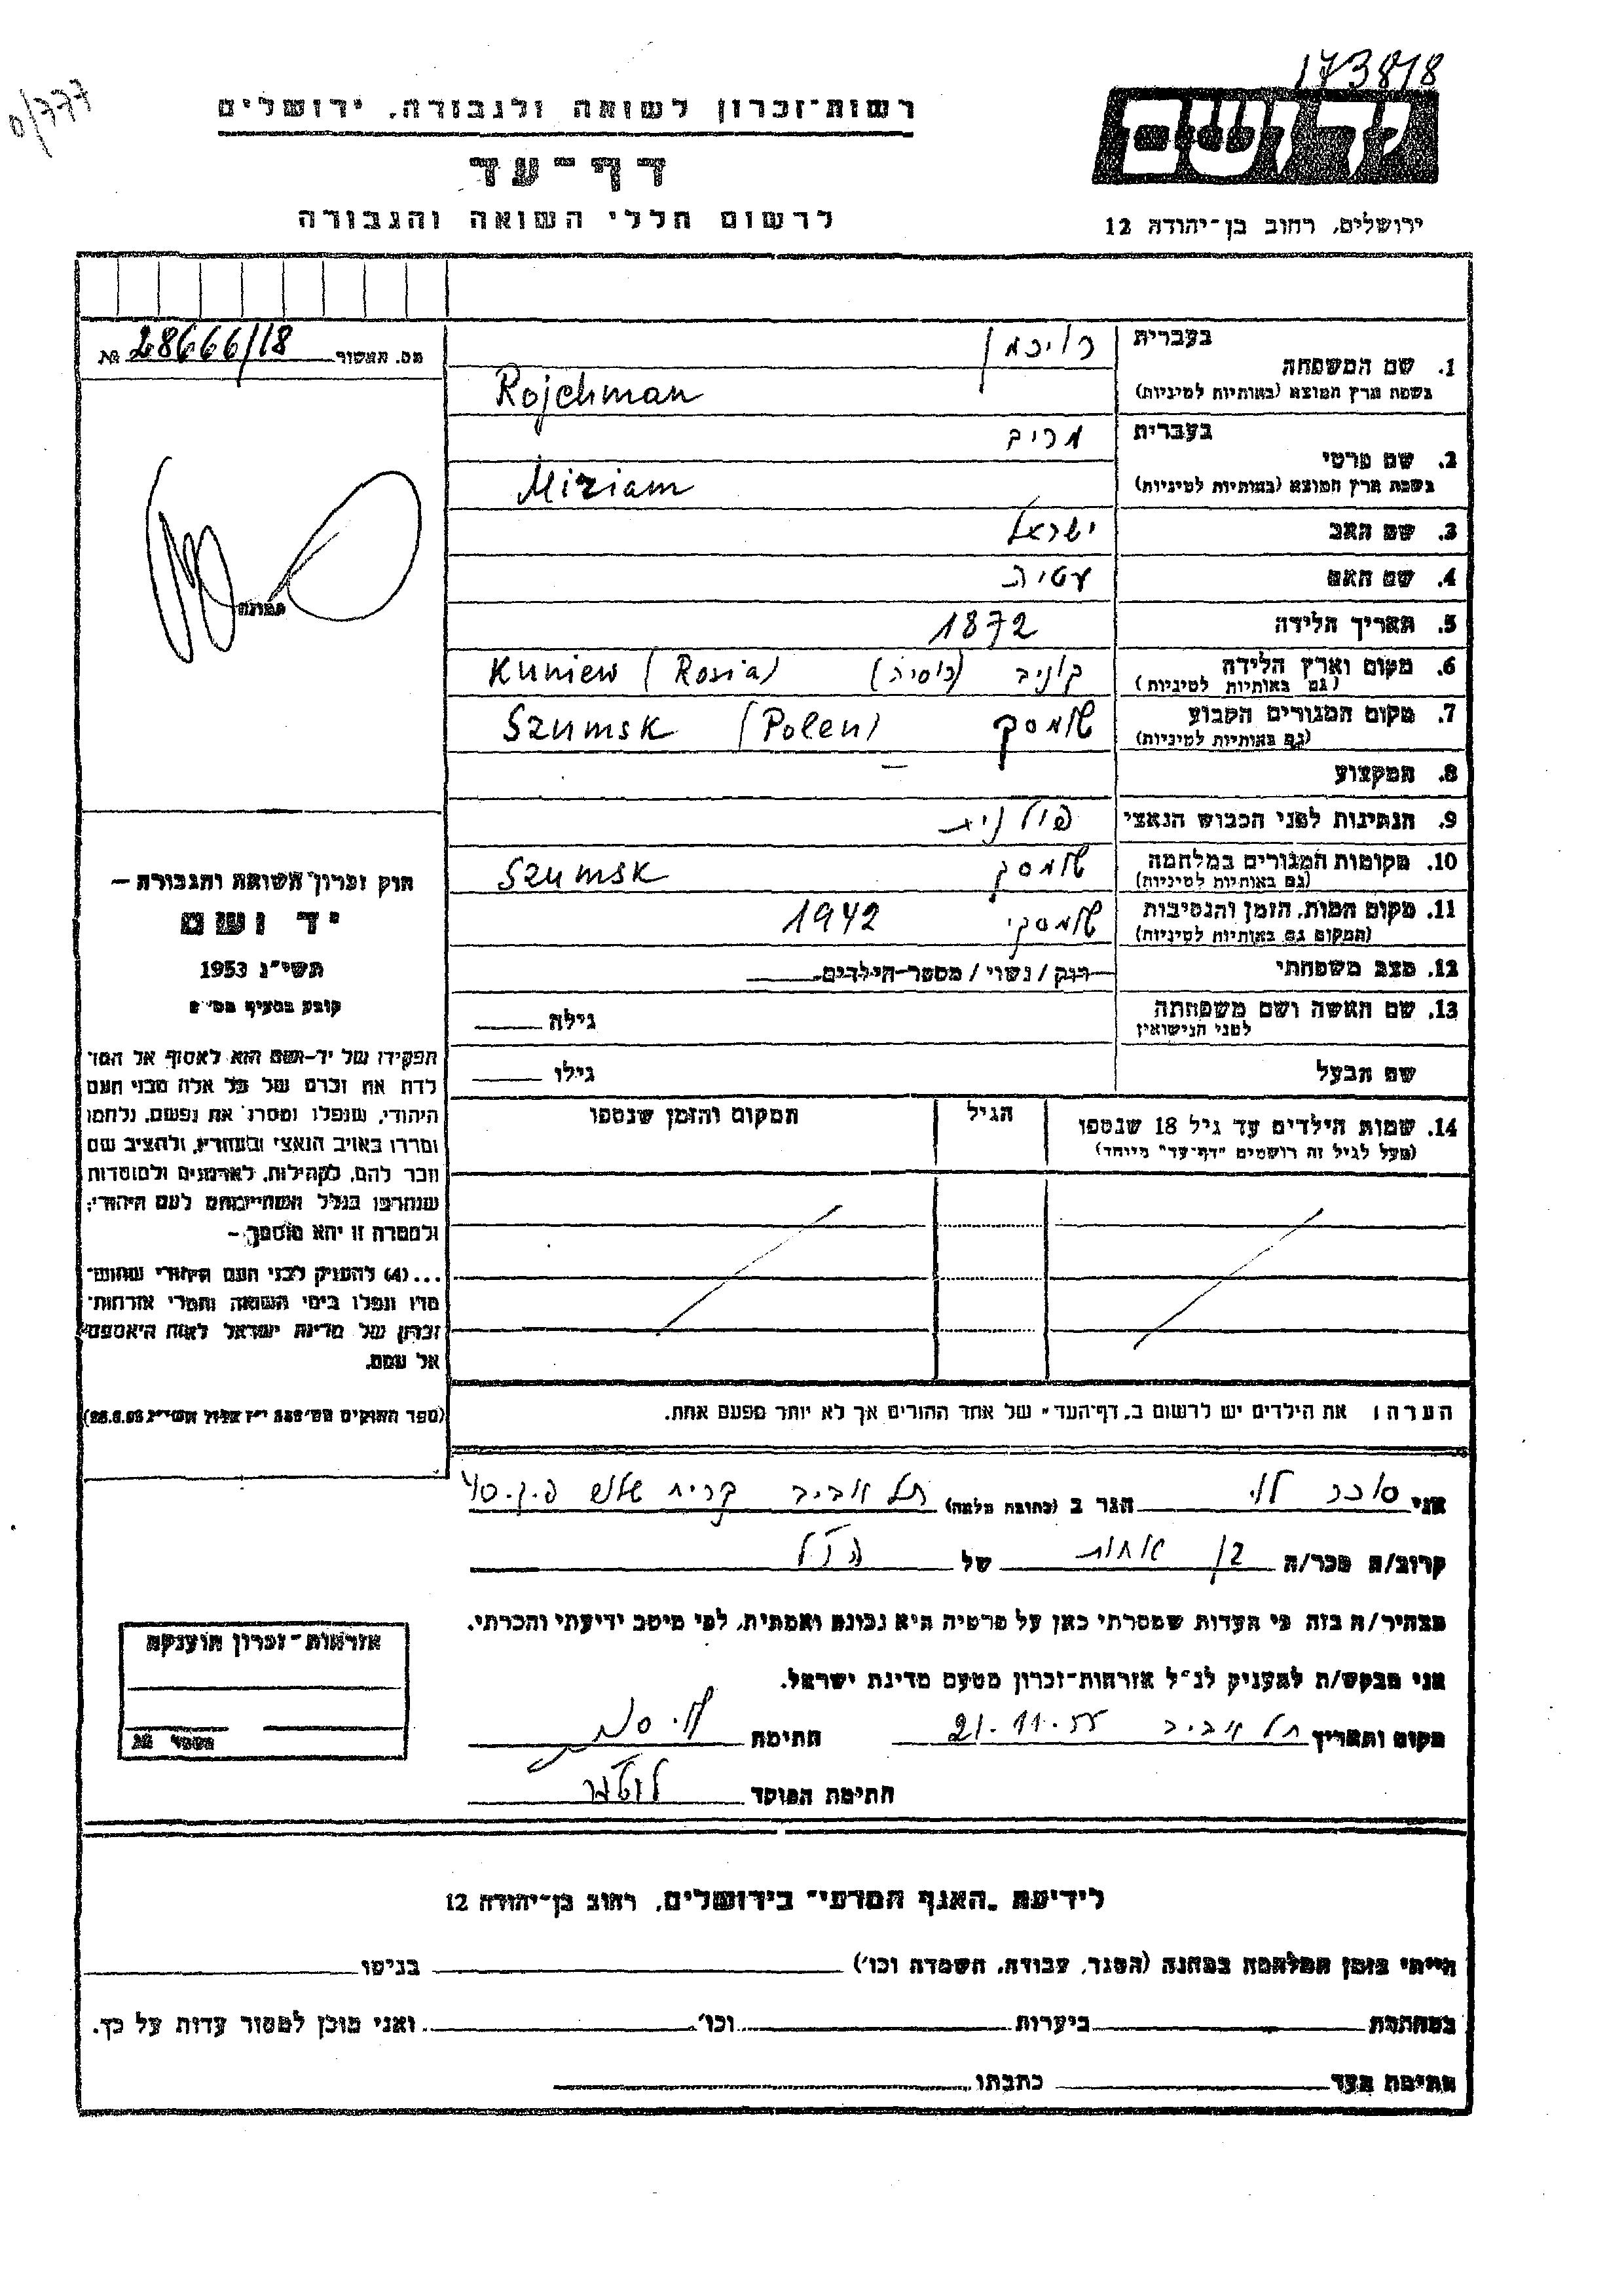 173818
0/777
יד ושם
ירושלים, רחוב בן־יהודה 12
רשות־זכרון לשואה ולגבורה, ירושלים
דף־עד
לרשום חללי השואה והגבורה
מס. האשור 28666/18 №
תמונה
חוק זכרון השואה והגבורה —
יד ושם
תשי"ג 1953
קובע בסעיף מס' 2
תפקידו של יד-ושם הוא לאסוף אל המו־
לדת את זכרם של כל אלה מבני העם
היהודי, שנפלו ומסרו את נפשם, נלחמו
ומרדו באויב הנאצי ובעוזריו, ולהציב שם
וזכר להם, לקהילות, לארגונים ולמוסדות
שנחרבו בגלל השתייכותם לעם היהודי;
ולמטרה זו יהא מוסמך —
...(4) להעניק לבני העם היהודי שהוש־
מדו ונפלו בימי השואה והמרי אזרחות־
זכרון של מדינת ישראל לאות היאספם
אל עמם.
1. שם המשפחה בעברית רויכמן
בשפת ארץ המוצא (באותיות לטיניות) Rojchman
2. שם פרטי בעברית מרים
בשפת ארץ המוצא (באותיות לטיניות) Miriam
3. שם האב ישראל
4. שם האם עטיה
5. תאריך הלידה 1872
6. מקום וארץ הלידה קוניב (רוסיה) Kuniew (Rosia)
(גם באותיות לטיניות)
7. מקום המגורים הקבוע שומסק Szumsk (Polen)
(גם באותיות לטיניות)
8. המקצוע —
9. הנתינות לפני הכבוש הנאצי פולנית
10. מקומות המגורים במלחמה שומסק Szumsk
(גם באותיות לטיניות)
11. מקום המות, הזמן והנסיבות שומסק 1942
(המקום גם באותיות לטיניות)
12. מצב משפחתי רוק / נשוי / מספר הילדים
13. שם האשה ושם משפחתה גילה
לפני הנישואין
שם הבעל גילו
14. שמות הילדים עד גיל 18 שנספו הגיל המקום והזמן שנספו
(מעל לגיל זה רושמים "דף־עד" מיוחד)
הערה: את הילדים יש לרשום ב"דף־העד" של אחד ההורים אך לא יותר מפעם אחת.
אני סובר לוי הגר ב (כתובת מלאה) תל אביב קרית שלום
קרוב/ה מכר/ה בן אחות של הנ"ל
מצהיר/ה בזה כי העדות שמסרתי כאן על פרטיה היא נכונה ואמתית, לפי מיטב ידיעתי והכרתי.
אני מבקש/ת להעניק לנ"ל אזרחות־זכרון מטעם מדינת ישראל.
מקום ותאריך תל אביב 21.11.55 חתימה
חתימת הפוקד
אזרחות־זכרון הוענקה
מספר №
לידיעת "האגף המדעי" בירושלים, רחוב בן־יהודה 12
הייתי בזמן המלחמה במחנה (הסגר, עבודה, השמדה וכו') בגיטו
במחתרת ביערות וכו' ואני מוכן למסור עדות על כך.
חתימת העד כתבתו